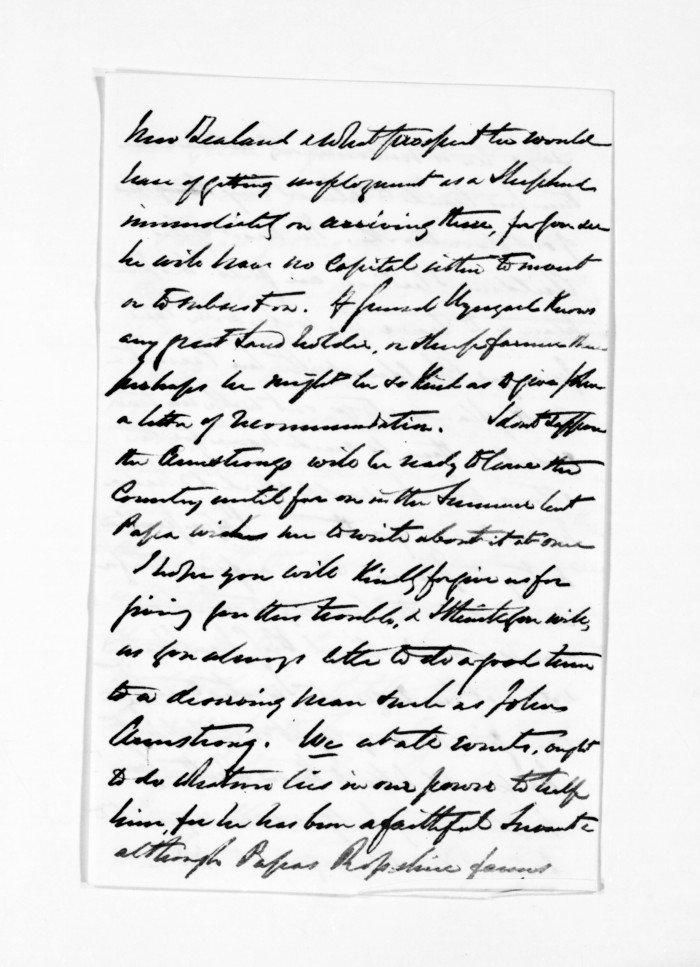 New Zealand & what prospect he would
have of getting employment as a Shepherd
immediately on arriving there, for you see
he will have no Capital either to invest
or to subsist on. If General Wynyard Knows
any great Land holder, or sheep farmer there
perhaps he might be so Kind as to give John
a letter of recommendation. I dont suppose
the Armstrongs will be ready to leave the
Country until far on in the Summer but
Papa wishes me to write about it at once
I hope you will Kindly forgive us for
giving you this trouble, & I think you will,
as you always like to do a good turn
to a deserving man such as John
Armstrong. We at all events, ought
to do whatever lies in our power to help
him, for he has been a faithful Servant &
although Papas farms